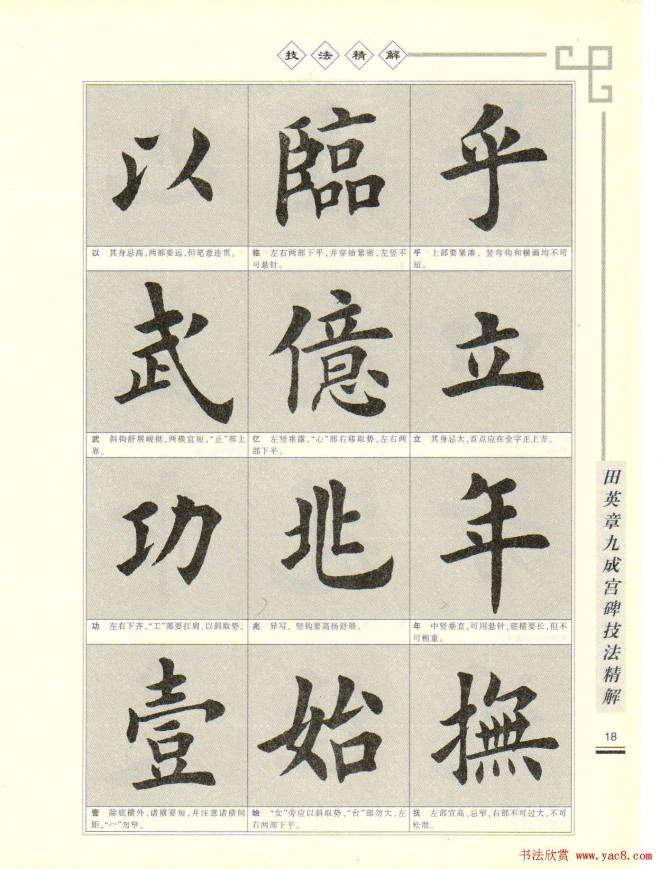 技法精解
以
臨
乎
以 其身忌高,两部要远,但笔意连贯。
临 左右两部下平,并穿插紧密,左竖不
可悬针。
乎 上部要紧凑,竖弯钩和横画均不可
短。
武
億
立
武 斜钩舒展峻挺,两横宜短,“止”部上
靠。
亿 左竖垂露,“心”部右移取势,左右两
部下平。
立 其身忌大,首点应在全字正上方。
功
兆
年
功 左右下齐,“工”部要扛肩,以斜取势。
兆 异写。竖钩要高扬舒展。
年 中竖垂直,可用悬针,底横要长,但不
可粗重。
壹
始
撫
壹 除底横外,诸横要短,并注意诸横间
距,“冖”勿窄。
始 “女”旁应以斜取势,“台”部勿大,左
右两部下平。
抚 左部宜高、忌窄,右部不可过大,不可
松散。
田英章九成宫碑技法精解
18
书法欣赏 www.yac8.com